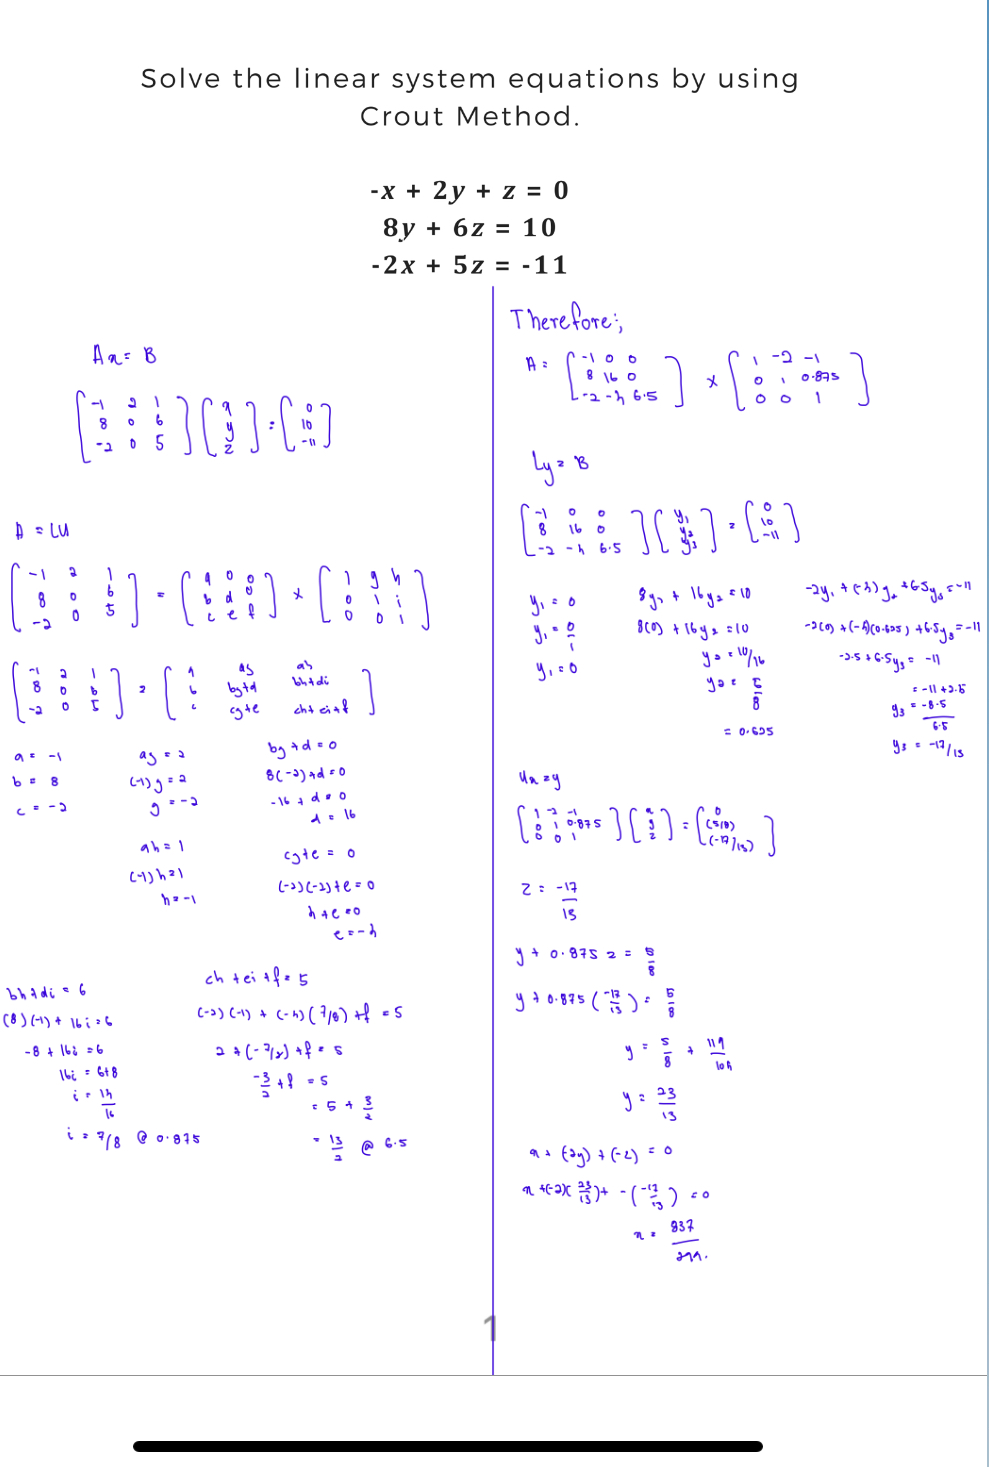 Solve the linear system equations by using
Crout Method.
-x + 2y + z = 0
8y + 6z = 10
-2x + 5z = -11
Ax = B
[-1 2 1
8 0 6
-2 0 5] [x
y
z] = [0
10
-11]
A = LU
[-1 2 1
8 0 6
-2 0 5] = [a 0 0
b d 0
c e f] × [1 g h
0 1 i
0 0 1]
[-1 2 1
8 0 6
-2 0 5] = [a ag ah
b bg+d bh+di
c cg+e ch+ei+f]
a = -1
b = 8
c = -2
ag = 2
(-1)g = 2
g = -2
bg + d = 0
8(-2)+d = 0
-16 + d = 0
d = 16
ah = 1
(-1)h = 1
h = -1
cg+e = 0
(-2)(-2)+e = 0
4+e = 0
e = -4
bh+di = 6
(8)(-1) + 16i = 6
-8 + 16i = 6
16i = 6+8
i = 14/16
i = 7/8 @ 0.875
ch + ei + f = 5
(-2)(-1) + (-4)(7/8) + f = 5
2 + (-7/2) + f = 5
-3/2 + f = 5
= 5 + 3/2
= 13/2 @ 6.5
Therefore;
A = [-1 0 0
8 16 0
-2 -4 6.5] × [1 -2 -1
0 1 0.875
0 0 1]
Ly = B
[-1 0 0
8 16 0
-2 -4 6.5] [y₁
y₂
y₃] = [0
10
-11]
y₁ = 0
y₁ = 0/1
y₁ = 0
8y₁ + 16y₂ = 10
8(0) + 16y₂ = 10
y₂ = 10/16
y₂ = 5/8
= 0.625
-2y₁ + (-4)y₂ + 6.5y₃ = -11
-2(0) + (-4)(0.625) + 6.5y₃ = -11
-2.5 + 6.5y₃ = -11
= -11 + 2.5
y₃ = -8.5/6.5
y₃ = -17/13
Ux = y
[1 -2 -1
0 1 0.875
0 0 1] [x
y
z] = [0
(5/8)
(-17/13)]
z = -17/13
y + 0.875 z = 5/8
y + 0.875 (-17/13) = 5/8
y = 5/8 + 119/104
y = 23/13
x + (-2y) + (-z) = 0
x + (-2)(23/13) + -(-17/13) = 0
x =
1